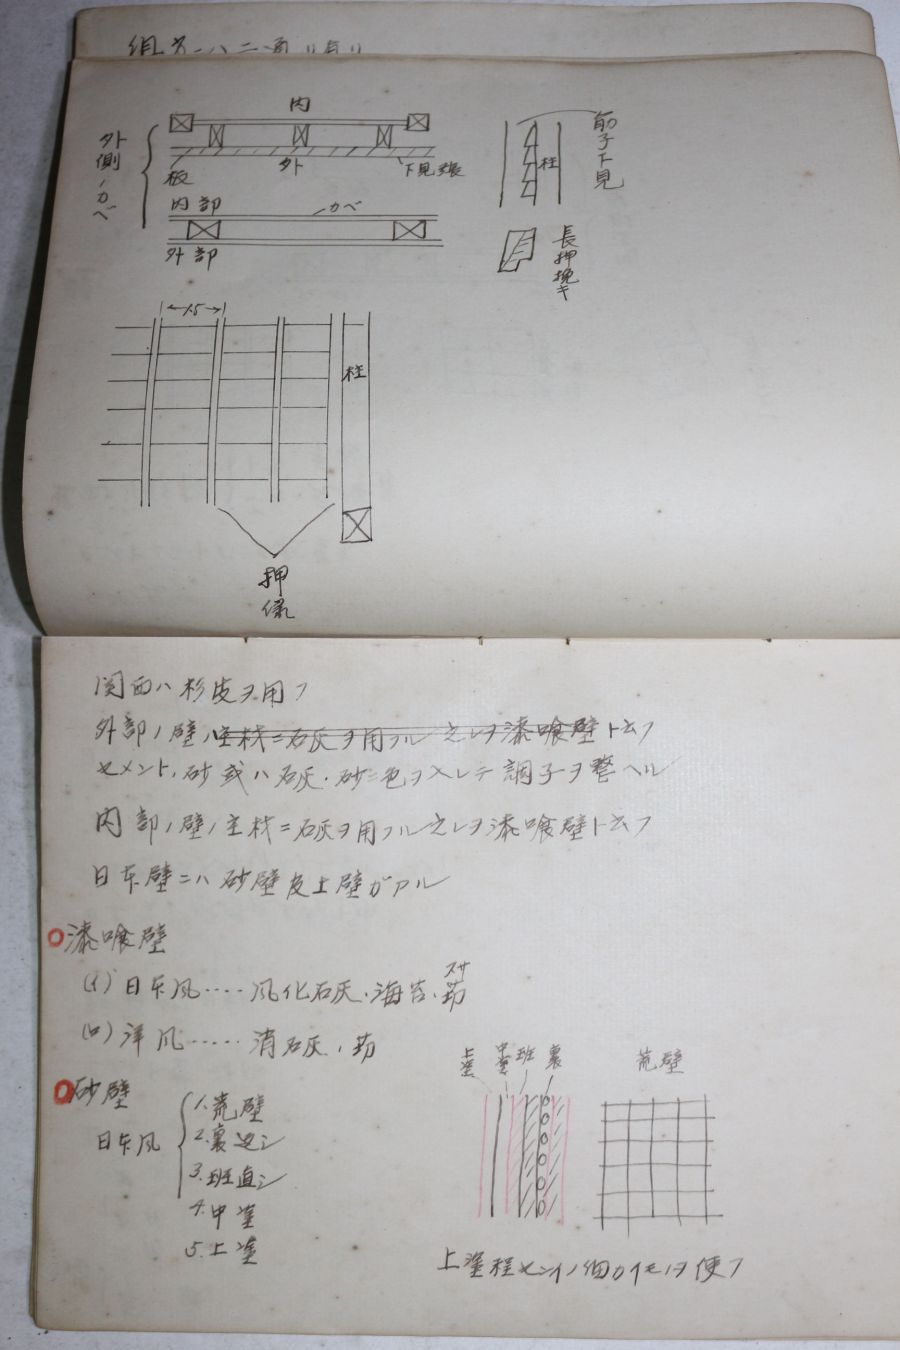 内
外側ノカベ
外
板
下見張
内部
カベ
外部
柱
下見
長押挽キ
1.5
柱
押縁
関西ハ杉皮ヲ用フ
外部ノ壁ノ主材ニ石灰ヲ用フル之レヲ漆喰壁ト云フ
セメント、砂或ハ石灰、砂ニ色ヲ入レテ調子ヲ整ヘル
内部ノ壁ノ主材ニ石灰ヲ用フル之レヲ漆喰壁ト云フ
日本壁ニハ砂壁及土壁ガアル
漆喰壁
スサ
(イ)日本風‥‥風化石灰、海苔、
(ロ)洋風‥‥‥消石灰、
砂壁
日本風
1.荒壁
2.裏返シ
3.班直シ
4.中塗
5.上塗
上塗 中塗 班 裏
荒壁
上塗程センイノ細カイモノヲ使フ